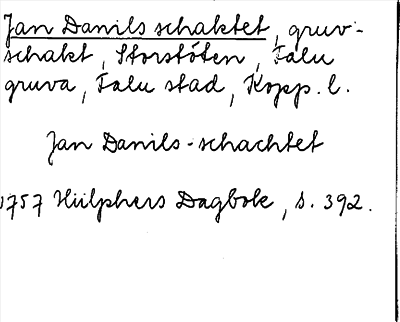 Jan Danils schaktet, gruv-
schakt, Storstöten, Falu
gruva, Falu stad, Kopp. l.
Jan Danils-schachtet
1757 Hülphers Dagbok, s. 392.